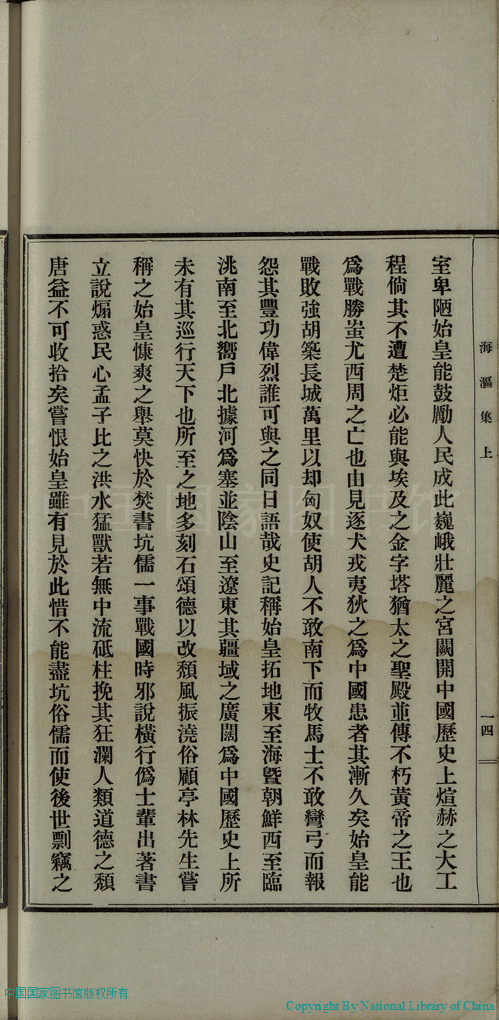 海漚集上
一四
室卑陋始皇能鼓勵人民成此巍峨壯麗之宮闕開中國歷史上煊赫之大工
程倘其不遭楚炬必能與埃及之金字塔猶太之聖殿並傳不朽黃帝之王也
爲戰勝蚩尤西周之亡也由見逐犬戎夷狄之爲中國患者其漸久矣始皇能
戰敗強胡築長城萬里以却匈奴使胡人不敢南下而牧馬士不敢彎弓而報
怨其豐功偉烈誰可與之同日語哉史記稱始皇拓地東至海曁朝鮮西至臨
洮南至北嚮戶北據河爲塞並陰山至遼東其疆域之廣闊爲中國歷史上所
未有其巡行天下也所至之地多刻石頌德以改頹風振澆俗顧亭林先生嘗
稱之始皇慷爽之舉莫快於焚書坑儒一事戰國時邪說橫行僞士輩出著書
立說煽惑民心孟子比之洪水猛獸若無中流砥柱挽其狂瀾人類道德之頹
唐益不可收拾矣嘗恨始皇雖有見於此惜不能盡坑俗儒而使後世剽竊之
中国国家图书馆
中国国家图书馆版权所有
Copyright By National Library of China